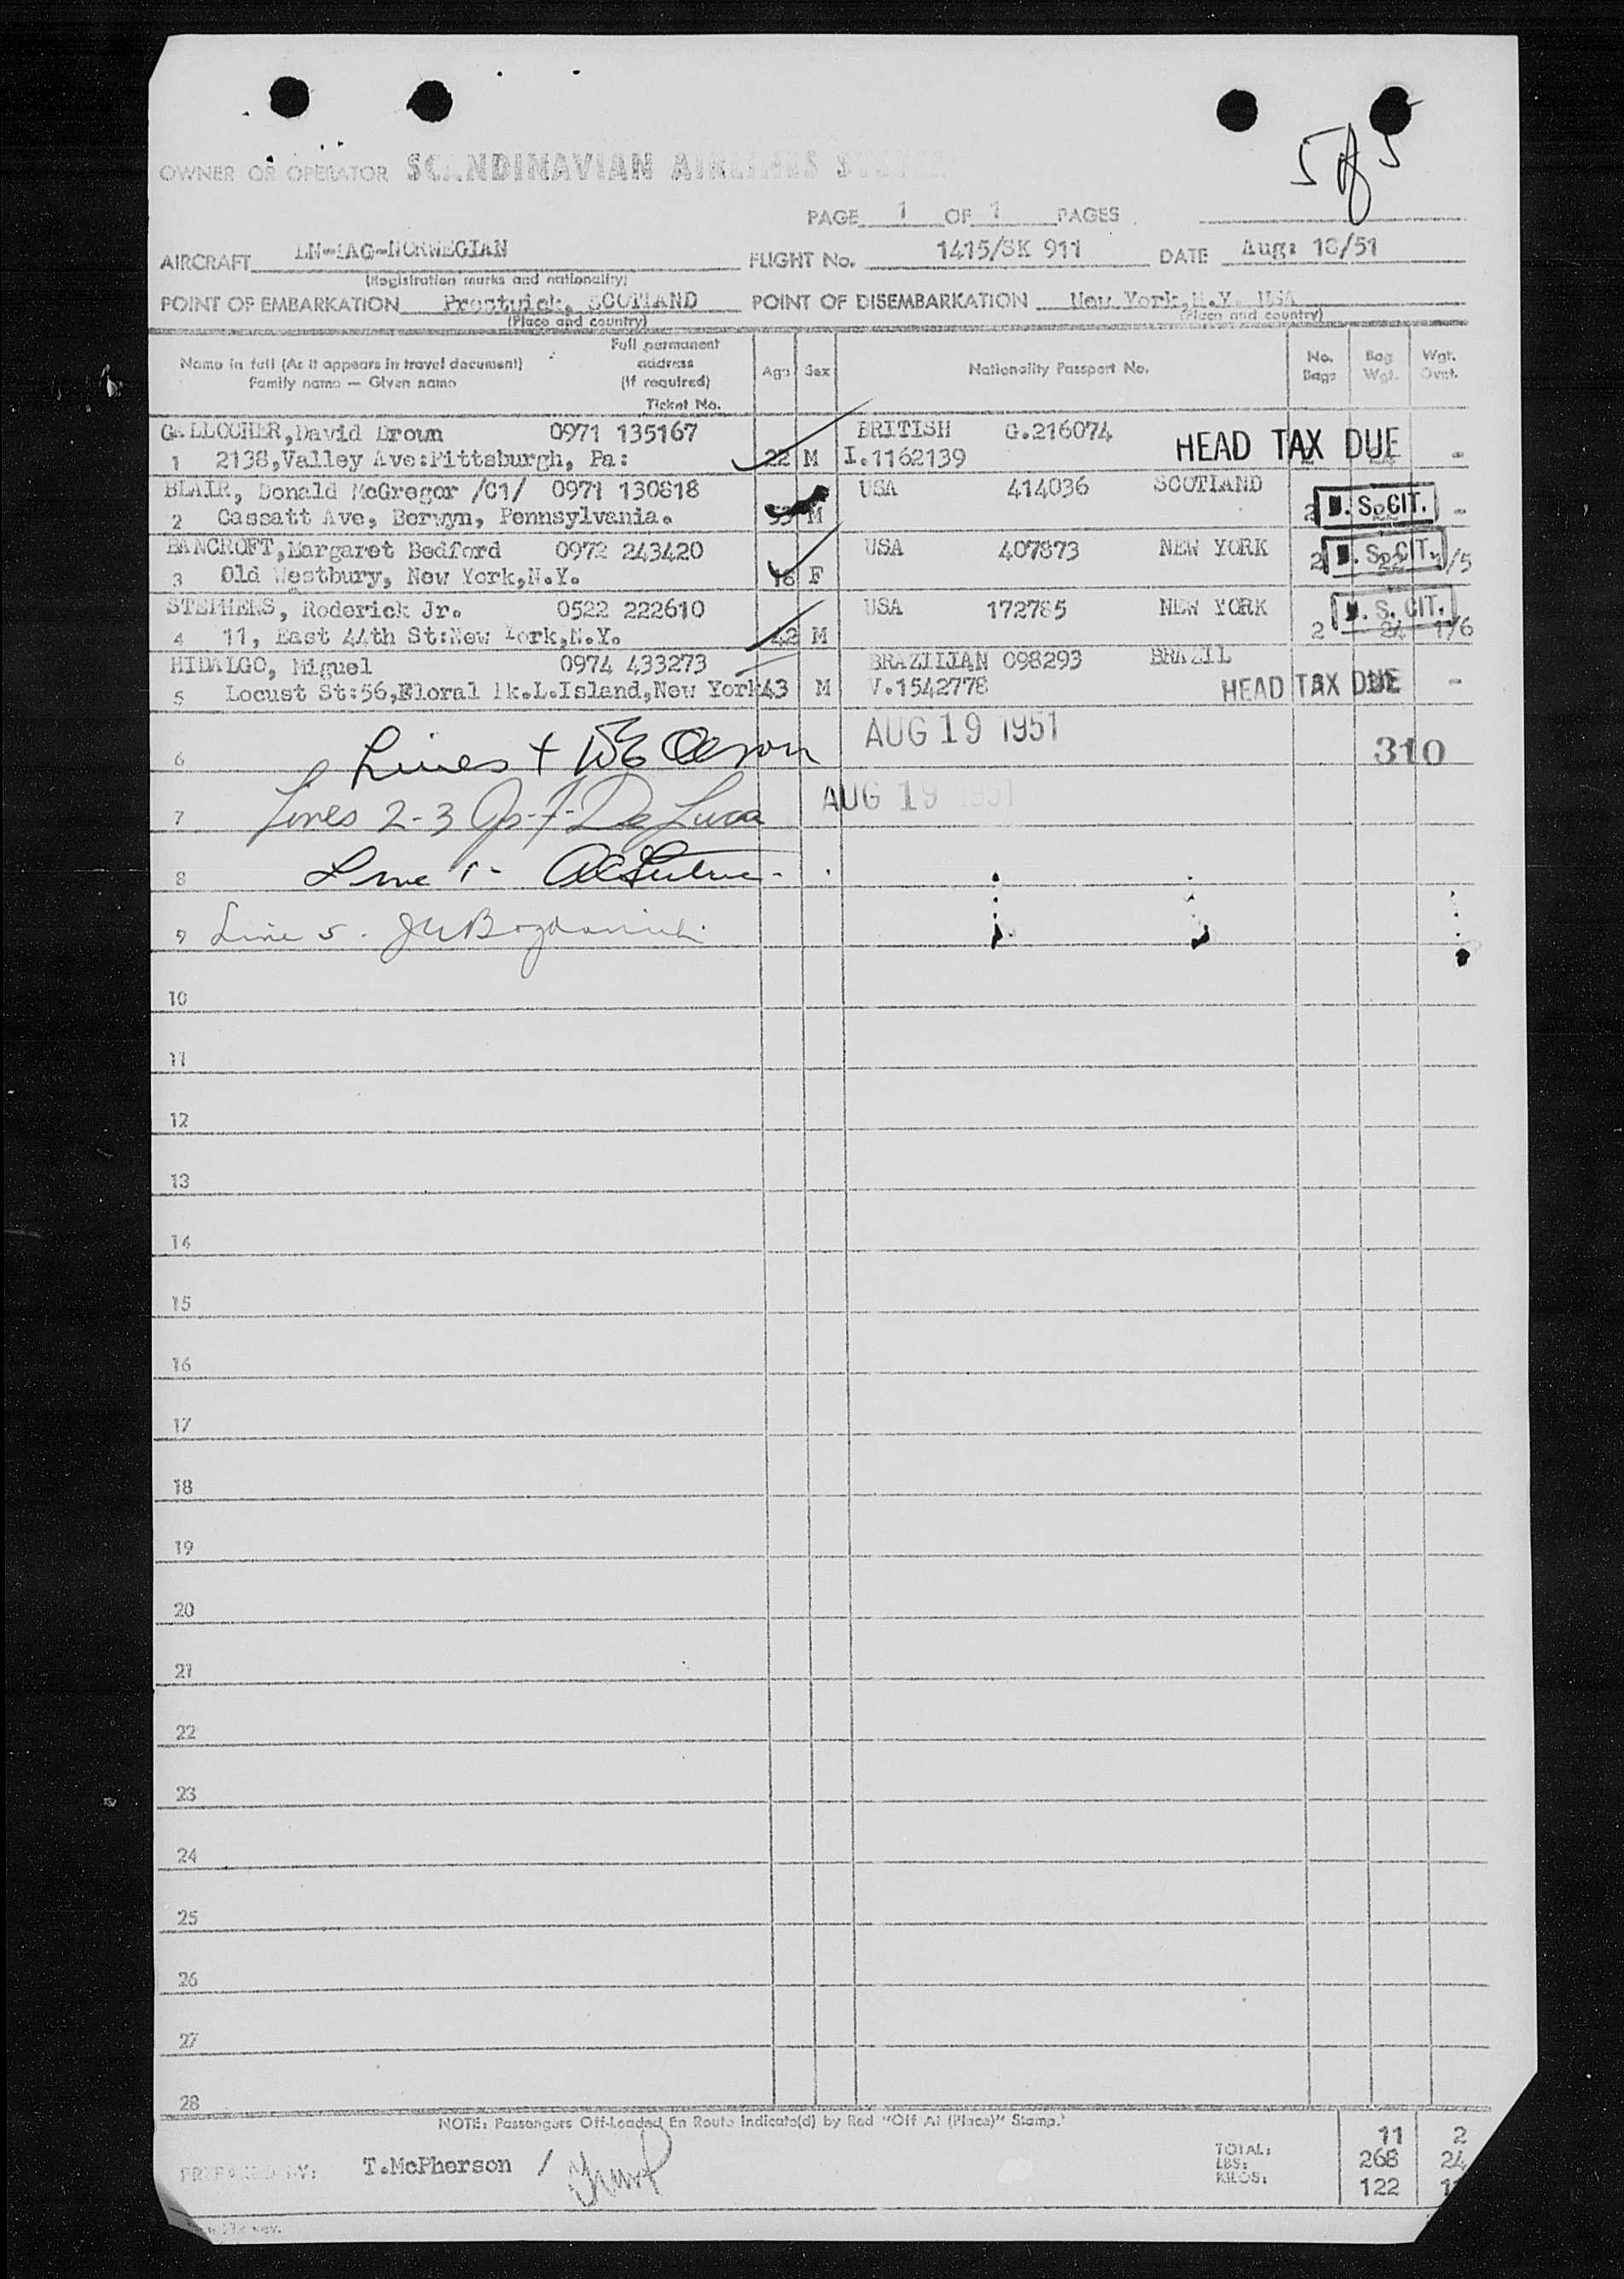 5 of 5
OWNER OR OPERATOR SCANDINAVIAN AIRLINES SYSTEM
PAGE 1 OF 1 PAGES
AIRCRAFT NORWEGIAN FLIGHT No. 1415/SK 911 DATE Aug: 18/51
(Registration marks and nationality)
POINT OF EMBARKATION Prestwick, SCOTLAND POINT OF DISEMBARKATION New York,N.Y. USA
(Place and country) (Place and country)
Name in full (As it appears in travel document) Family name — Given name Full permanent address (If required) Ticket No. Age Sex Nationality Passport No. No. Bags Bag Wgt. Wgt. Ovnt.
GALLOCHER,David Brown 0971 135167 BRITISH G.216074 HEAD TAX DUE
1 2138,Valley Ave:Pittsburgh, Pa: 22 M I.1162139 -
BLAIR, Donald McGregor /C1/ 0971 130818 USA 414036 SCOTLAND U. S. CIT.
2 Cassatt Ave, Berwyn, Pennsylvania. 53 M 2 -
BANCROFT,Margaret Bedford 0972 243420 USA 407873 NEW YORK U. S. CIT.
3 Old Westbury, New York,N.Y. 18 F 2 22 1/5
STEPHENS, Roderick Jr. 0522 222610 USA 172785 NEW YORK U. S. CIT.
4 11, East 44th St:New York,N.Y. 42 M 2 24 1/6
HIDALGO, Miguel 0974 433273 BRAZILIAN 098293 BRAZIL
5 Locust St:56,Floral Pk.L.Island,New York 43 M V.1542778 HEAD TAX DUE -
6 Lines AUG 19 1951 310
7 Lines 2-3 De Luca AUG 19 1951
8 Line 1-
9 Line 5.
10
11
12
13
14
15
16
17
18
19
20
21
22
23
24
25
26
27
28
NOTE: Passengers Off-Loaded En Route Indicate(d) by Red "Off At (Place)" Stamp.
TOTAL: 11 2
PREPARED BY: T.McPherson / LBS: 268 24
KILOS: 122